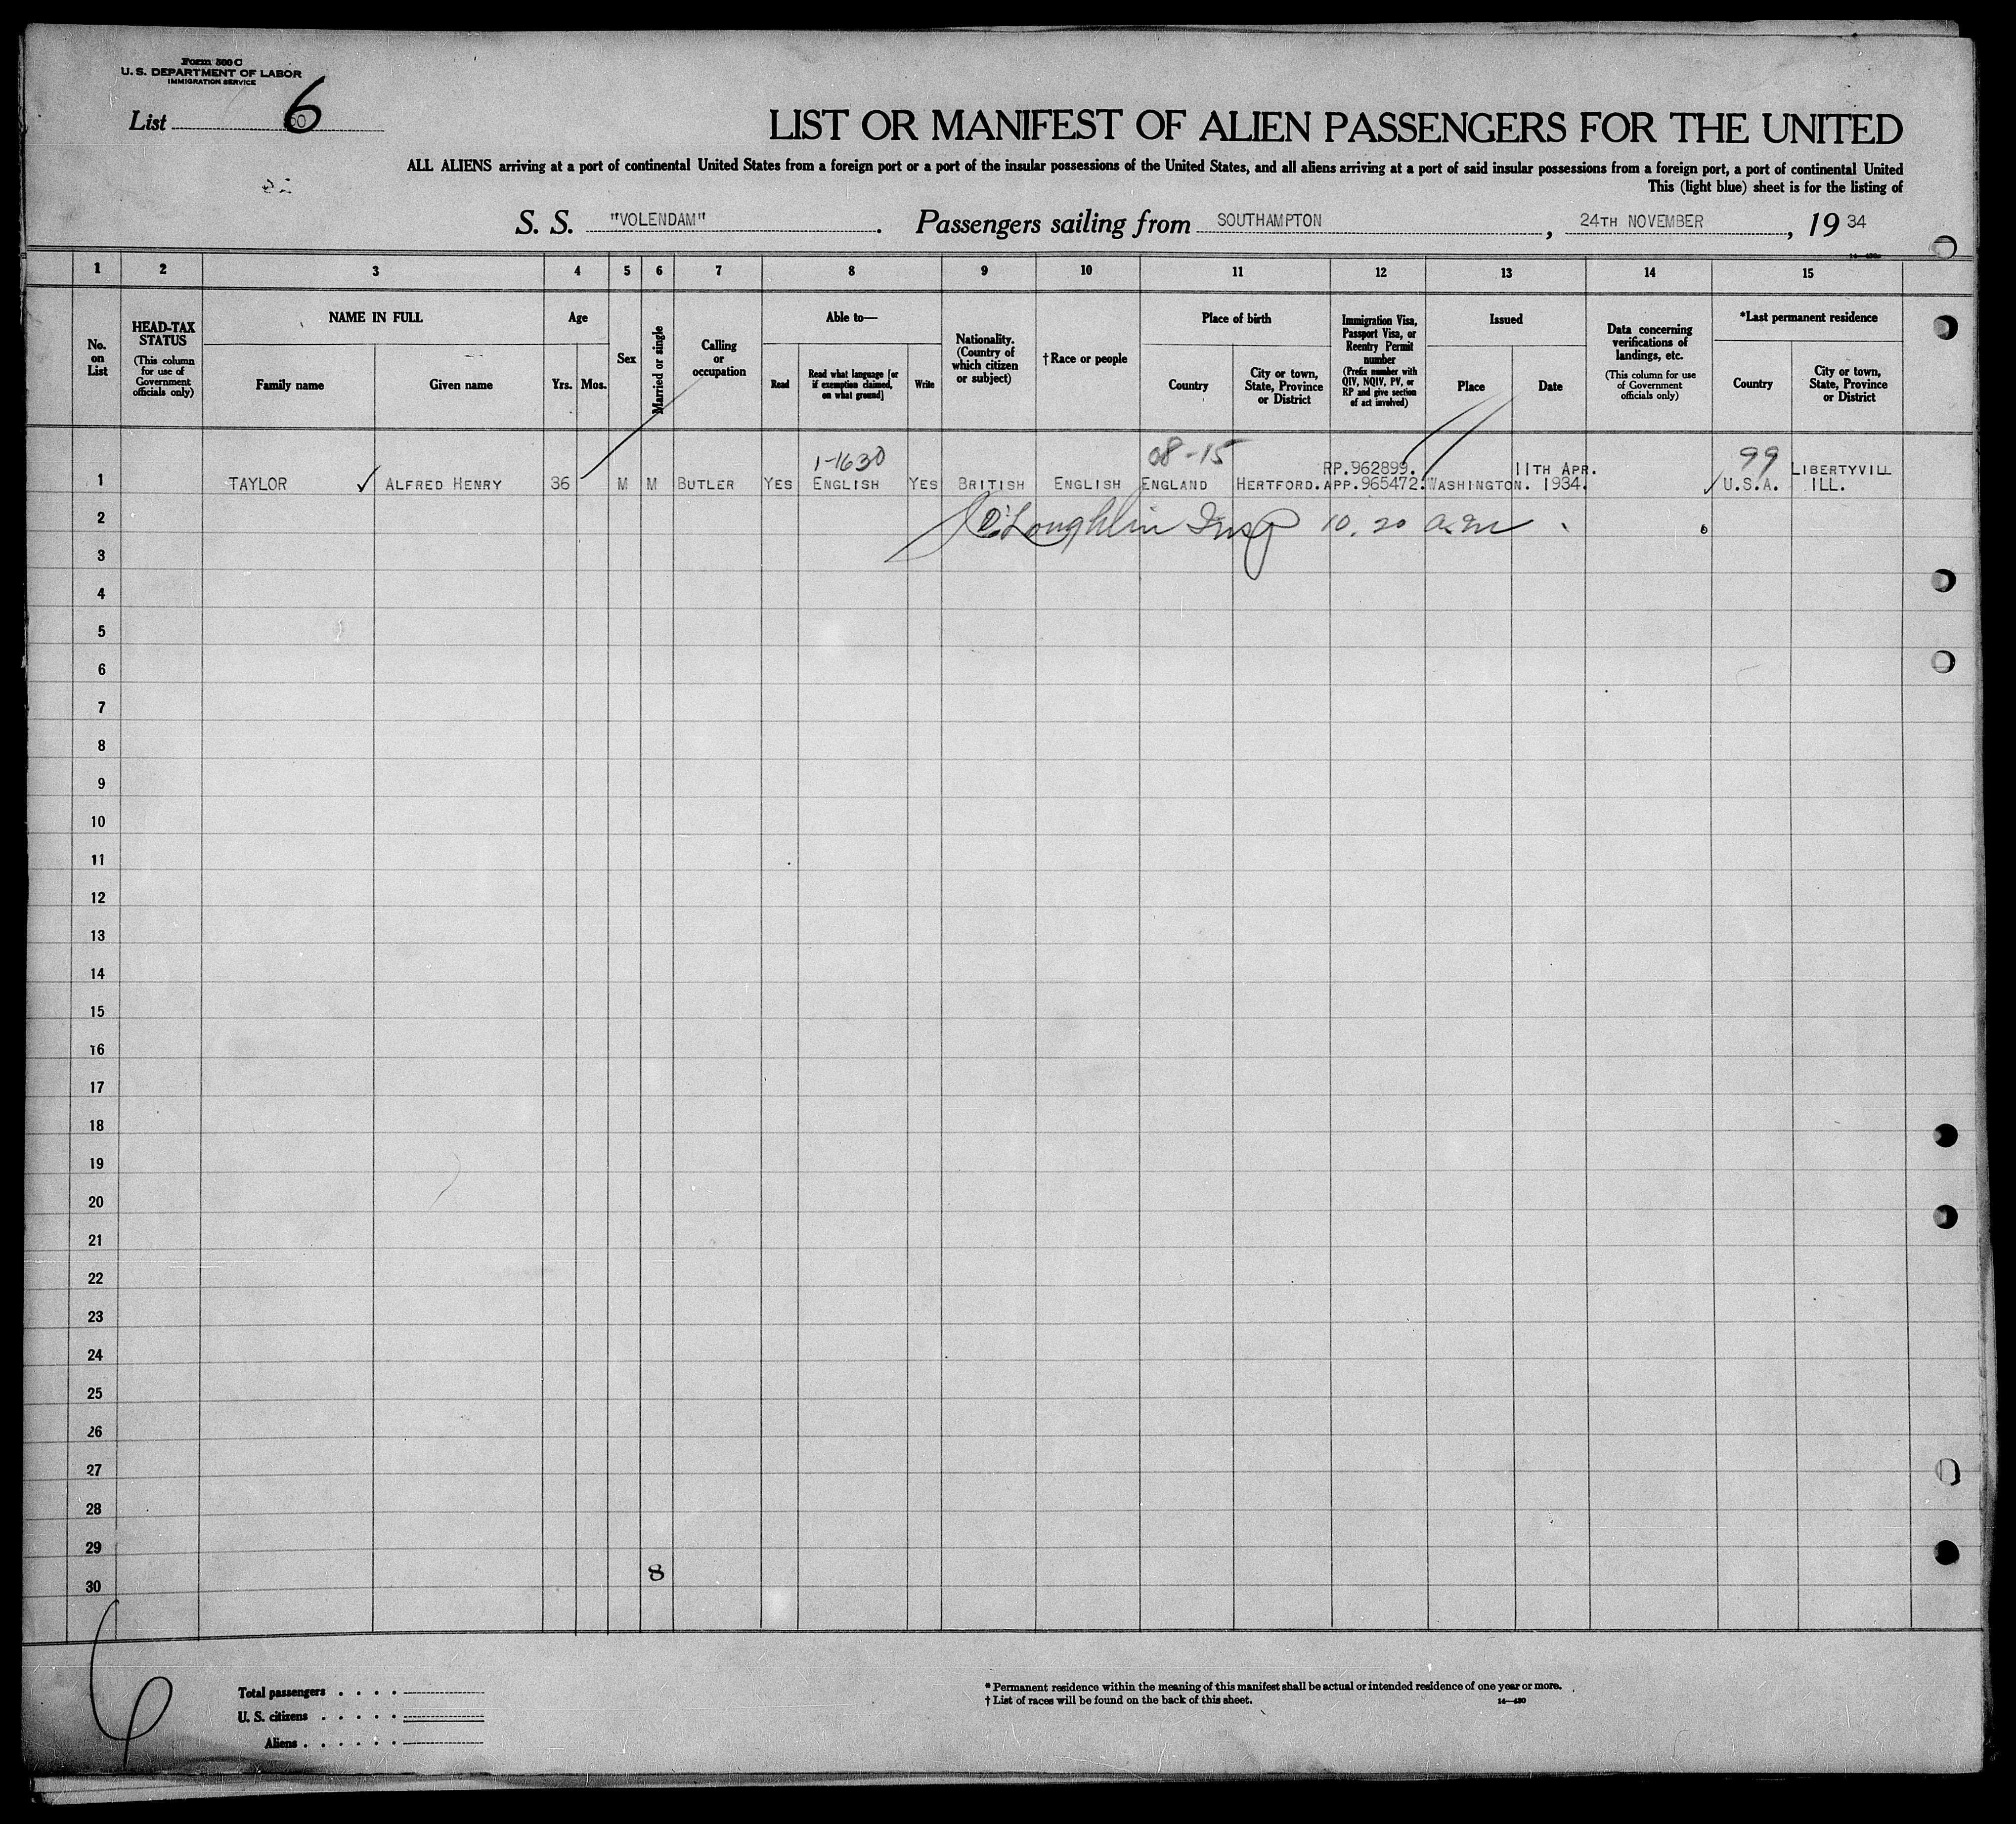 Form 500 C
U. S. DEPARTMENT OF LABOR
IMMIGRATION SERVICE
List 6
LIST OR MANIFEST OF ALIEN PASSENGERS FOR THE UNITED
ALL ALIENS arriving at a port of continental United States from a foreign port or a port of the insular possessions of the United States, and all aliens arriving at a port of said insular possessions from a foreign port, a port of continental United
This (light blue) sheet is for the listing of
S. S. "VOLENDAM". Passengers sailing from SOUTHAMPTON, 24TH NOVEMBER, 1934
1 2 3 4 5 6 7 8 9 10 11 12 13 14 15
No. on List
HEAD-TAX STATUS
(This column for use of Government officials only)
NAME IN FULL
Family name
Given name
Age
Yrs. Mos.
Sex
Married or single
Calling or occupation
Able to—
Read
Read what language [or if exemption claimed, on what ground]
Write
Nationality. (Country of which citizen or subject)
†Race or people
Place of birth
Country
City or town, State, Province or District
Immigration Visa, Passport Visa, or Reentry Permit number
(Prefix number with QIV, NQIV, PV, or RP and give section of act involved)
Issued
Place
Date
Data concerning verifications of landings, etc.
(This column for use of Government officials only)
*Last permanent residence
Country
City or town, State, Province or District
1-1630 08-15 RP.962899. 11TH APR. 99 LIBERTYVILL
1 TAYLOR ✓ ALFRED HENRY 36 M M BUTLER YES ENGLISH YES BRITISH ENGLISH ENGLAND HERTFORD. APP.965472. WASHINGTON. 1934. ✓ U.S.A. ILL.
2 O'Loughlin Insp 10.20 a.m
3
4
5
6
7
8
9
10
11
12
13
14
15
16
17
18
19
20
21
22
23
24
25
26
27
28
29
8
30
6
Total passengers . . . .
U. S. citizens . . . . .
Aliens . . . . . .
* Permanent residence within the meaning of this manifest shall be actual or intended residence of one year or more.
† List of races will be found on the back of this sheet. 14—430